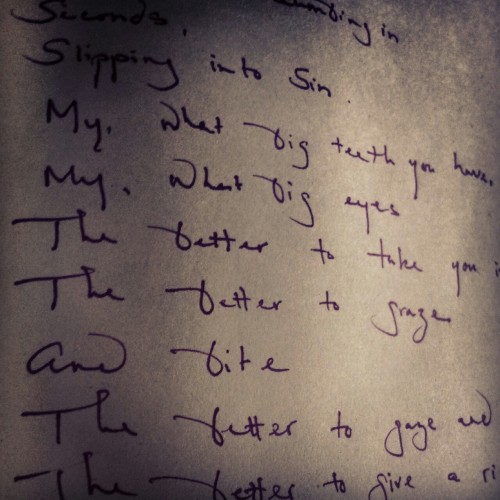 Seconds, in
Slipping into Sin.
My, What big teeth you have.
My, What big eyes
The better to take you
The better to graze
And bite
The better to gaze and
The better to give a